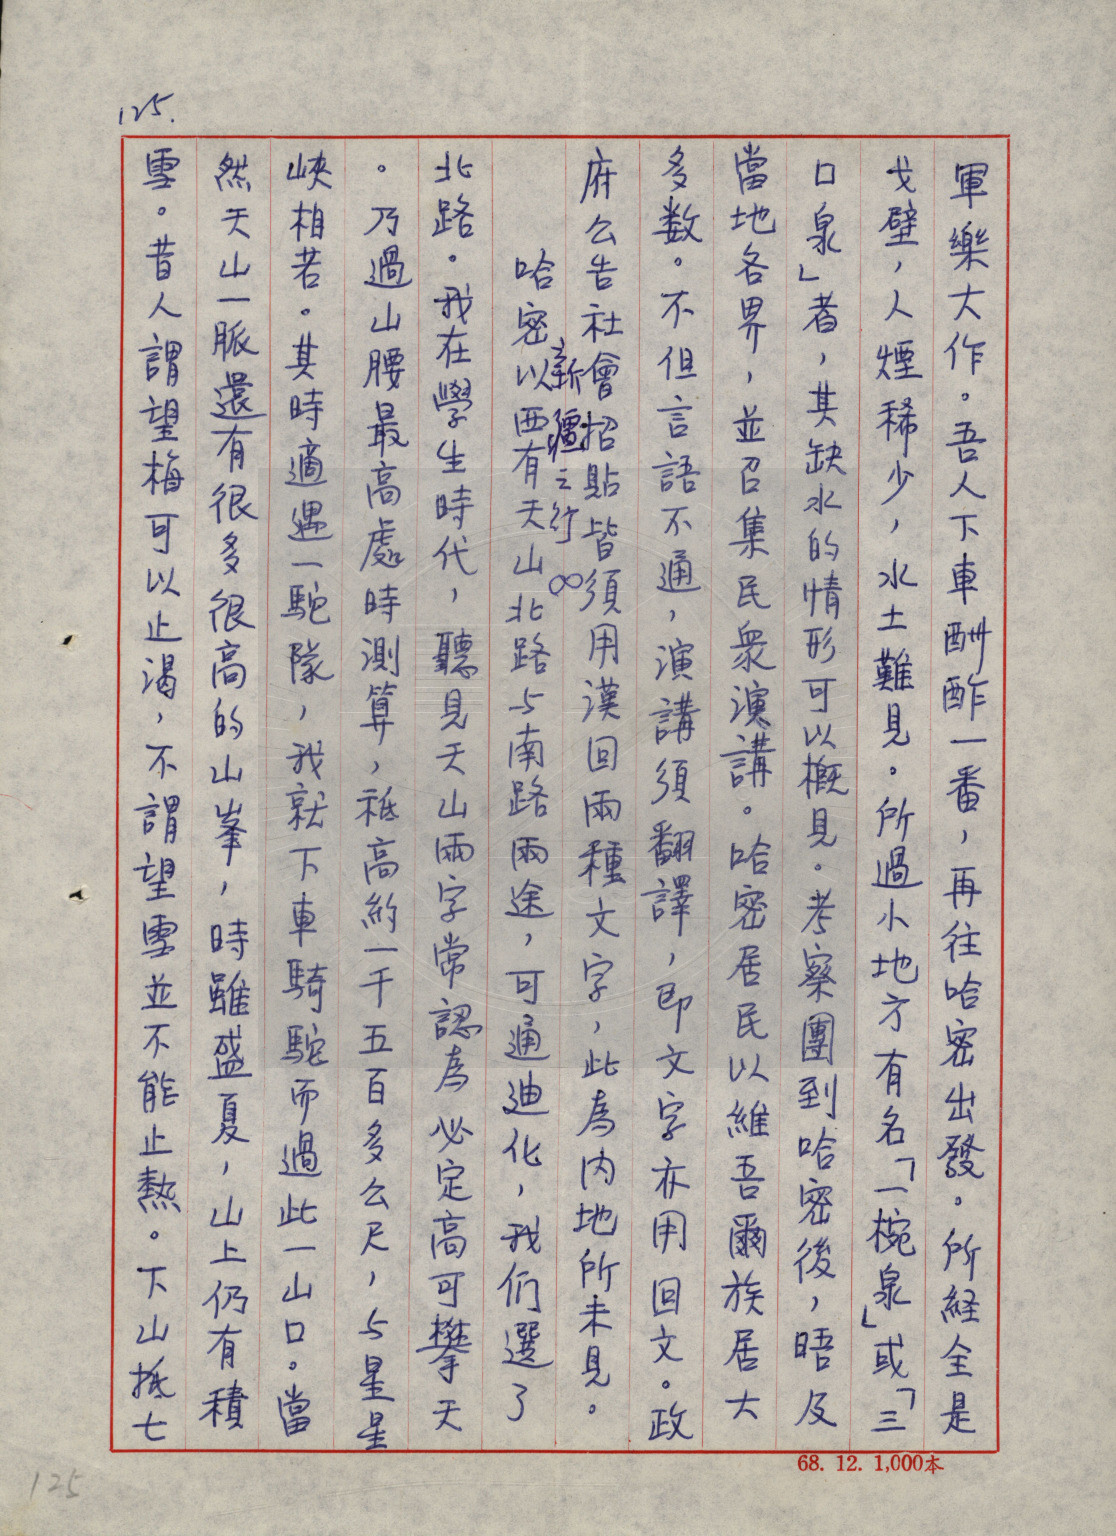 125.
軍樂大作。吾人下車酬酢一番，再往哈密出發。所経全是
戈壁，人煙稀少，水土難見。所過小地方有名「一椀泉」或「三
口泉」者，其缺水的情形可以概見。考察團到哈密後，晤及
當地各界，並召集民衆演講。哈密居民以維吾爾族居大
多数。不但言語不通，演講須翻譯，即文字亦用回文。政
府公告社會招貼皆須用漢回兩種文字，此為内地所未見。
新疆之行 8
哈密以西有天山北路与南路兩途，可通迪化，我们選了
北路。我在學生時代，聽見天山兩字常認為必定高可攀天
。乃過山腰最高處時測算，祗高約一千五百多公尺，与星星
峽相若。其時適遇一駝隊，我就下車騎駝而過此一山口。當
然天山一脈還有很多很高的山峯，時雖盛夏，山上仍有積
雪。昔人謂望梅可以止渴，不謂望雪並不能止熱。下山抵七
68. 12. 1,000本
125